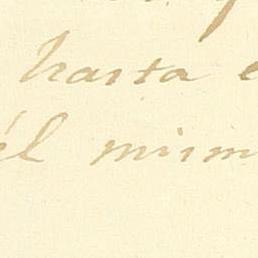 hasta e
él mism